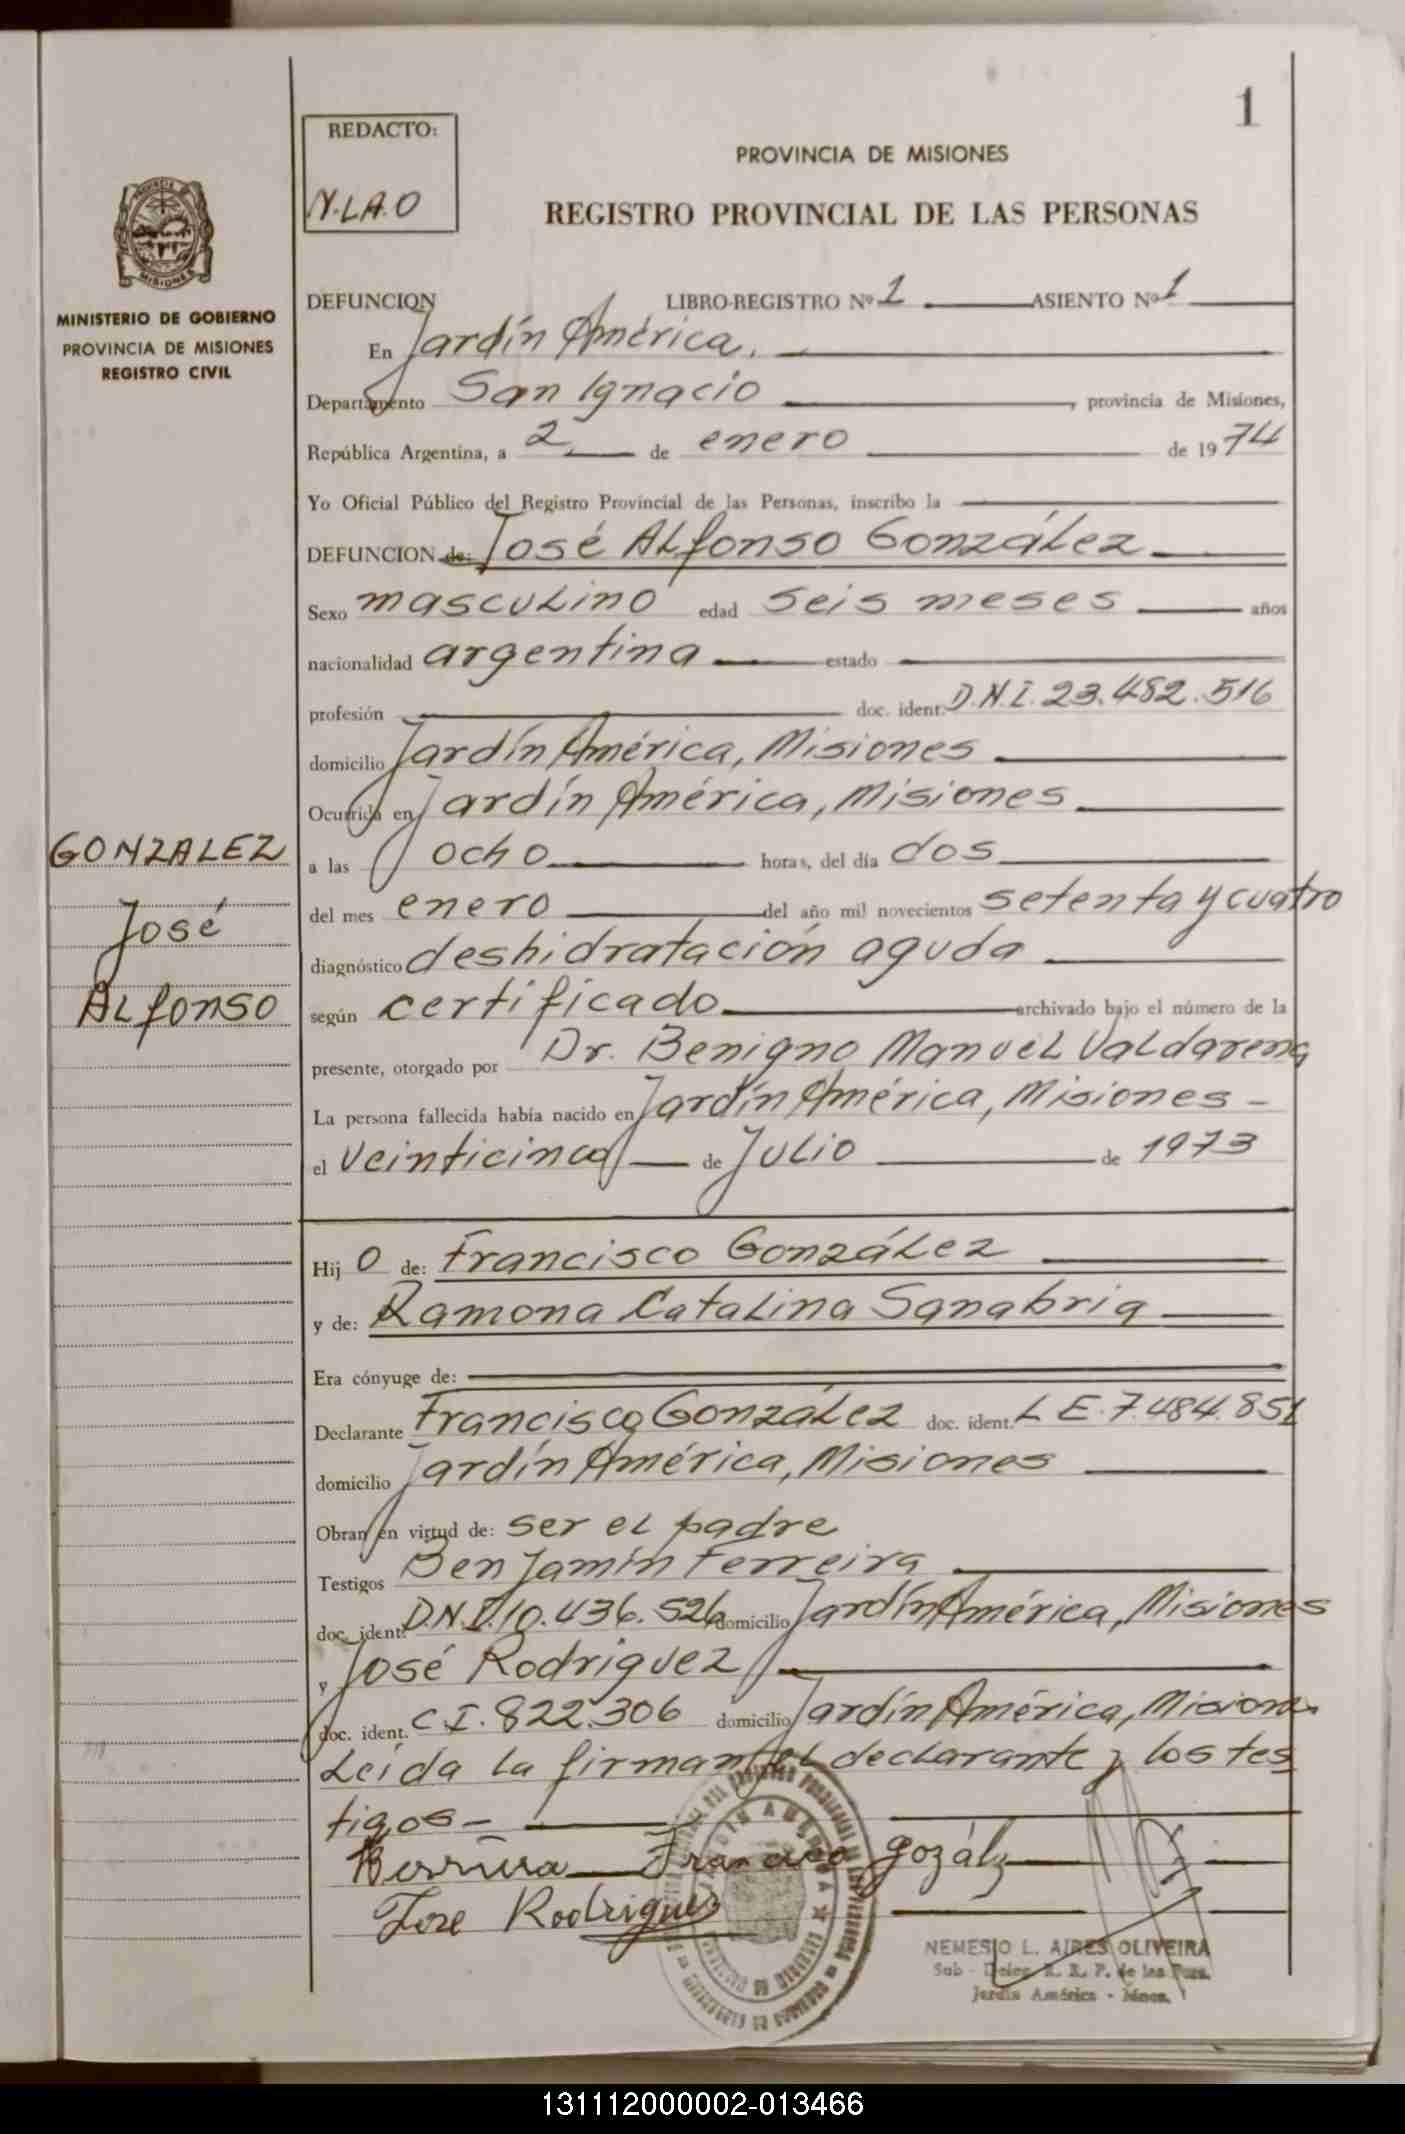 1
REDACTO:
N.L.A.O
PROVINCIA DE MISIONES
REGISTRO PROVINCIAL DE LAS PERSONAS
PROVINCIA DE
MISIONES
MINISTERIO DE GOBIERNO
PROVINCIA DE MISIONES
REGISTRO CIVIL
DEFUNCION LIBRO-REGISTRO Nº 1 ASIENTO Nº 1
En Jardín América,
Departamento San Ignacio, provincia de Misiones,
República Argentina, a 2 de enero de 1974
Yo Oficial Público del Registro Provincial de las Personas, inscribo la
DEFUNCION de: José Alfonso González
Sexo masculino edad seis meses años
nacionalidad argentina estado
profesión doc. ident. D.N.I. 23.482.516
domicilio Jardín América, Misiones
Ocurrida en Jardín América, Misiones
a las ocho horas, del día dos
del mes enero del año mil novecientos setenta y cuatro
diagnóstico deshidratación aguda
según certificado archivado bajo el número de la
presente, otorgado por Dr. Benigno Manuel Valdarena
La persona fallecida había nacido en Jardín América, Misiones -
el veinticinco de Julio de 1973
GONZALEZ
José
Alfonso
Hij o de: Francisco González
y de: Ramona Catalina Sanabria
Era cónyuge de:
Declarante Francisco González doc. ident. L E. 7.484.851
domicilio Jardín América, Misiones
Obran en virtud de: ser el padre
Testigos Benjamín Ferreira
doc. ident. D.N.I. 10.436.526 domicilio Jardín América, Misiones
y José Rodriguez
doc. ident. C.I. 822.306 domicilio Jardín América, Misiones
Leída la firman el declarante y los tes
tigos -
Francisco gozálz
Jose Rodrigues
JARDIN AMERICA
NEMESIO L. AIRES OLIVEIRA
Sub - Deleg. R. R. P. de las Pers.
Jardín América - Mnes.
131112000002-013466